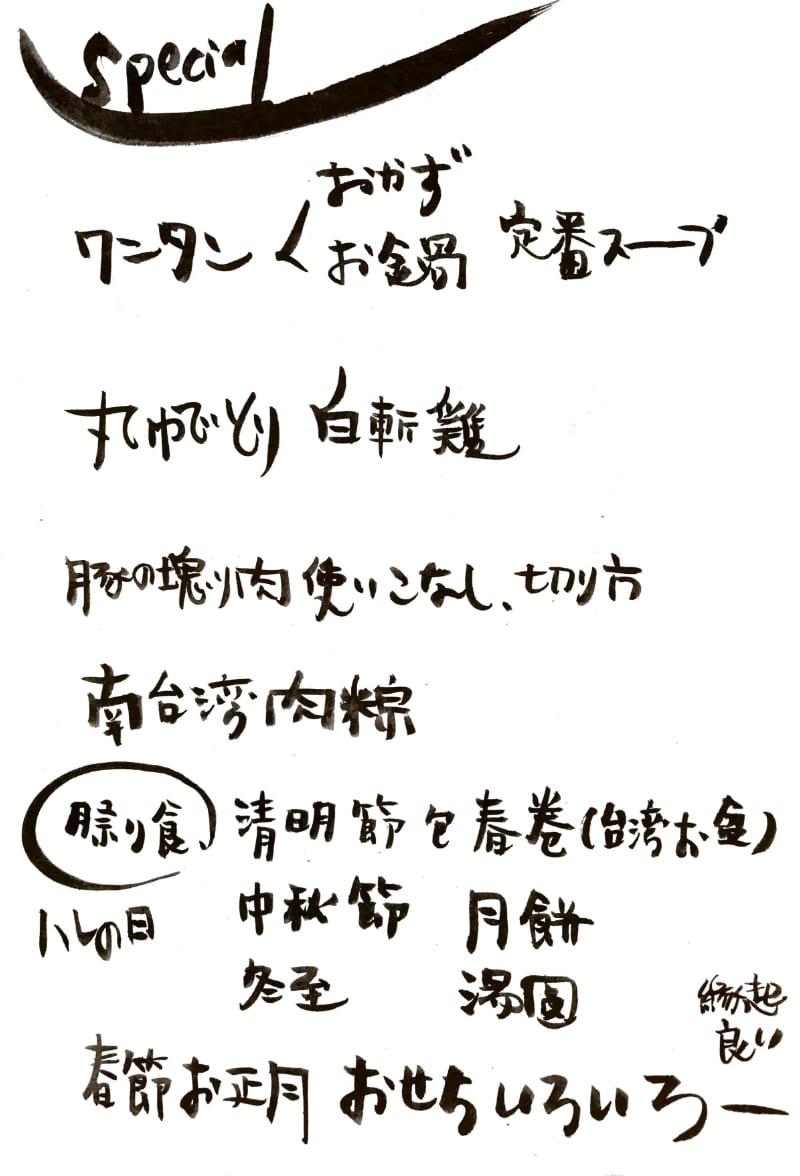 Special
ワンタン〈 おかず
お鍋 定番スープ
丸ゆでどり 白斬鶏
豚の塊り肉 使いこなし、切り方
南台湾肉粽
祭り食、 清明節 包春巻(台湾お金)
ハレの日 中秋節 月餅
冬至 湯圓
縁起
良い
春節お正月 おせちいろいろー